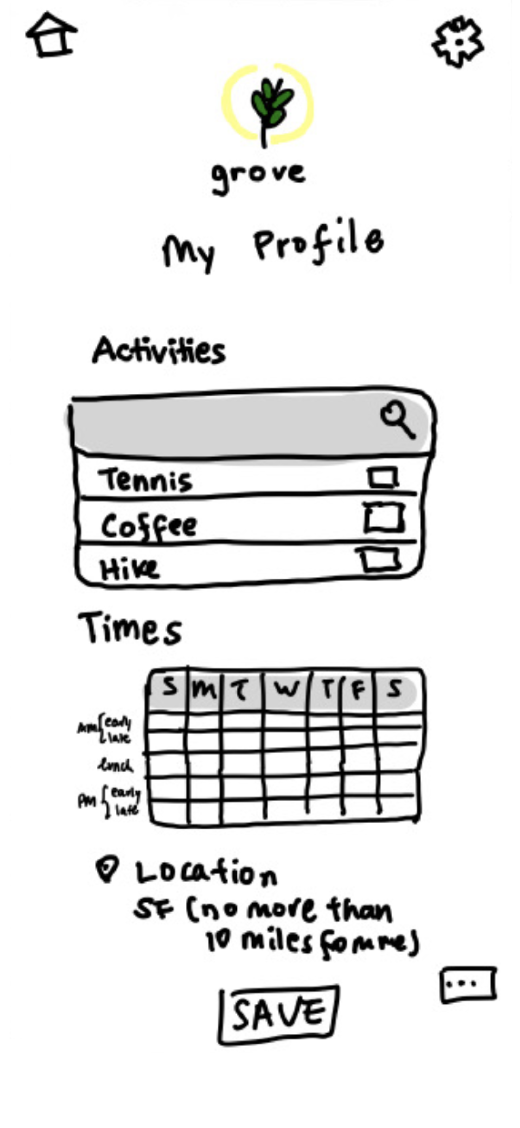 grove
My Profile
Activities
Tennis
Coffee
Hike
Times
S M T W T F S
AM early
late
lunch
PM early
late
Location
SF (no more than
10 miles from me)
...
SAVE